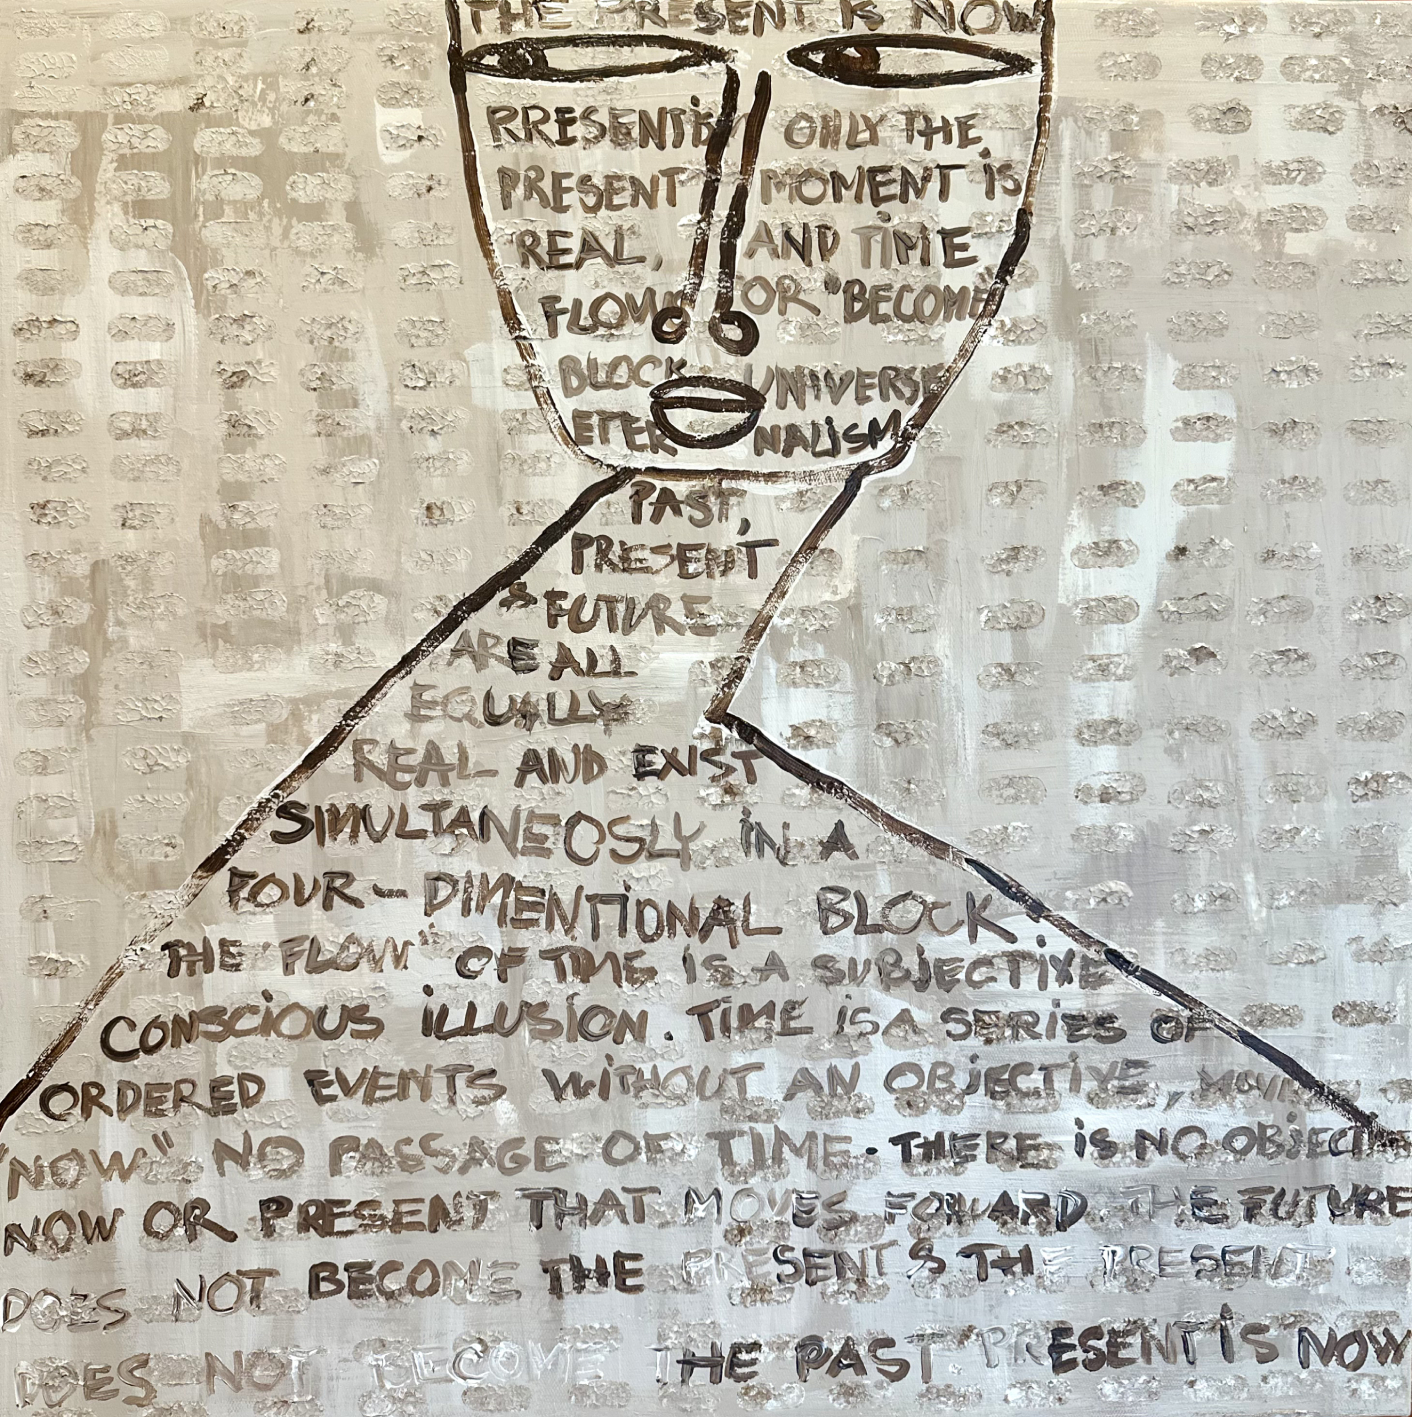 THE PRESENT IS NOW
PRESENTISM ONLY THE
PRESENT MOMENT IS
REAL, AND TIME
FLOWS OR "BECOME
BLOCK UNIVERSE
ETERNALISM
PAST,
PRESENT
& FUTURE
ARE ALL
EQUALLY
REAL AND EXIST
SIMULTANEOSLY IN A
FOUR-DIMENTIONAL BLOCK.
THE FLOW" OF TIME IS A SUBJECTIVE
CONSCIOUS ILLUSION. TIME IS A SERIES OF
ORDERED EVENTS WITHOUT AN OBJECTIVE,
"NOW" NO PASSAGE OF TIME. THERE IS NO OBJECTIVE
NOW OR PRESENT THAT MOVES FORWARD THE FUTURE
DOES NOT BECOME THE PRESENT & THE PRESENT
DOES NOT BECOME THE PAST PRESENT IS NOW